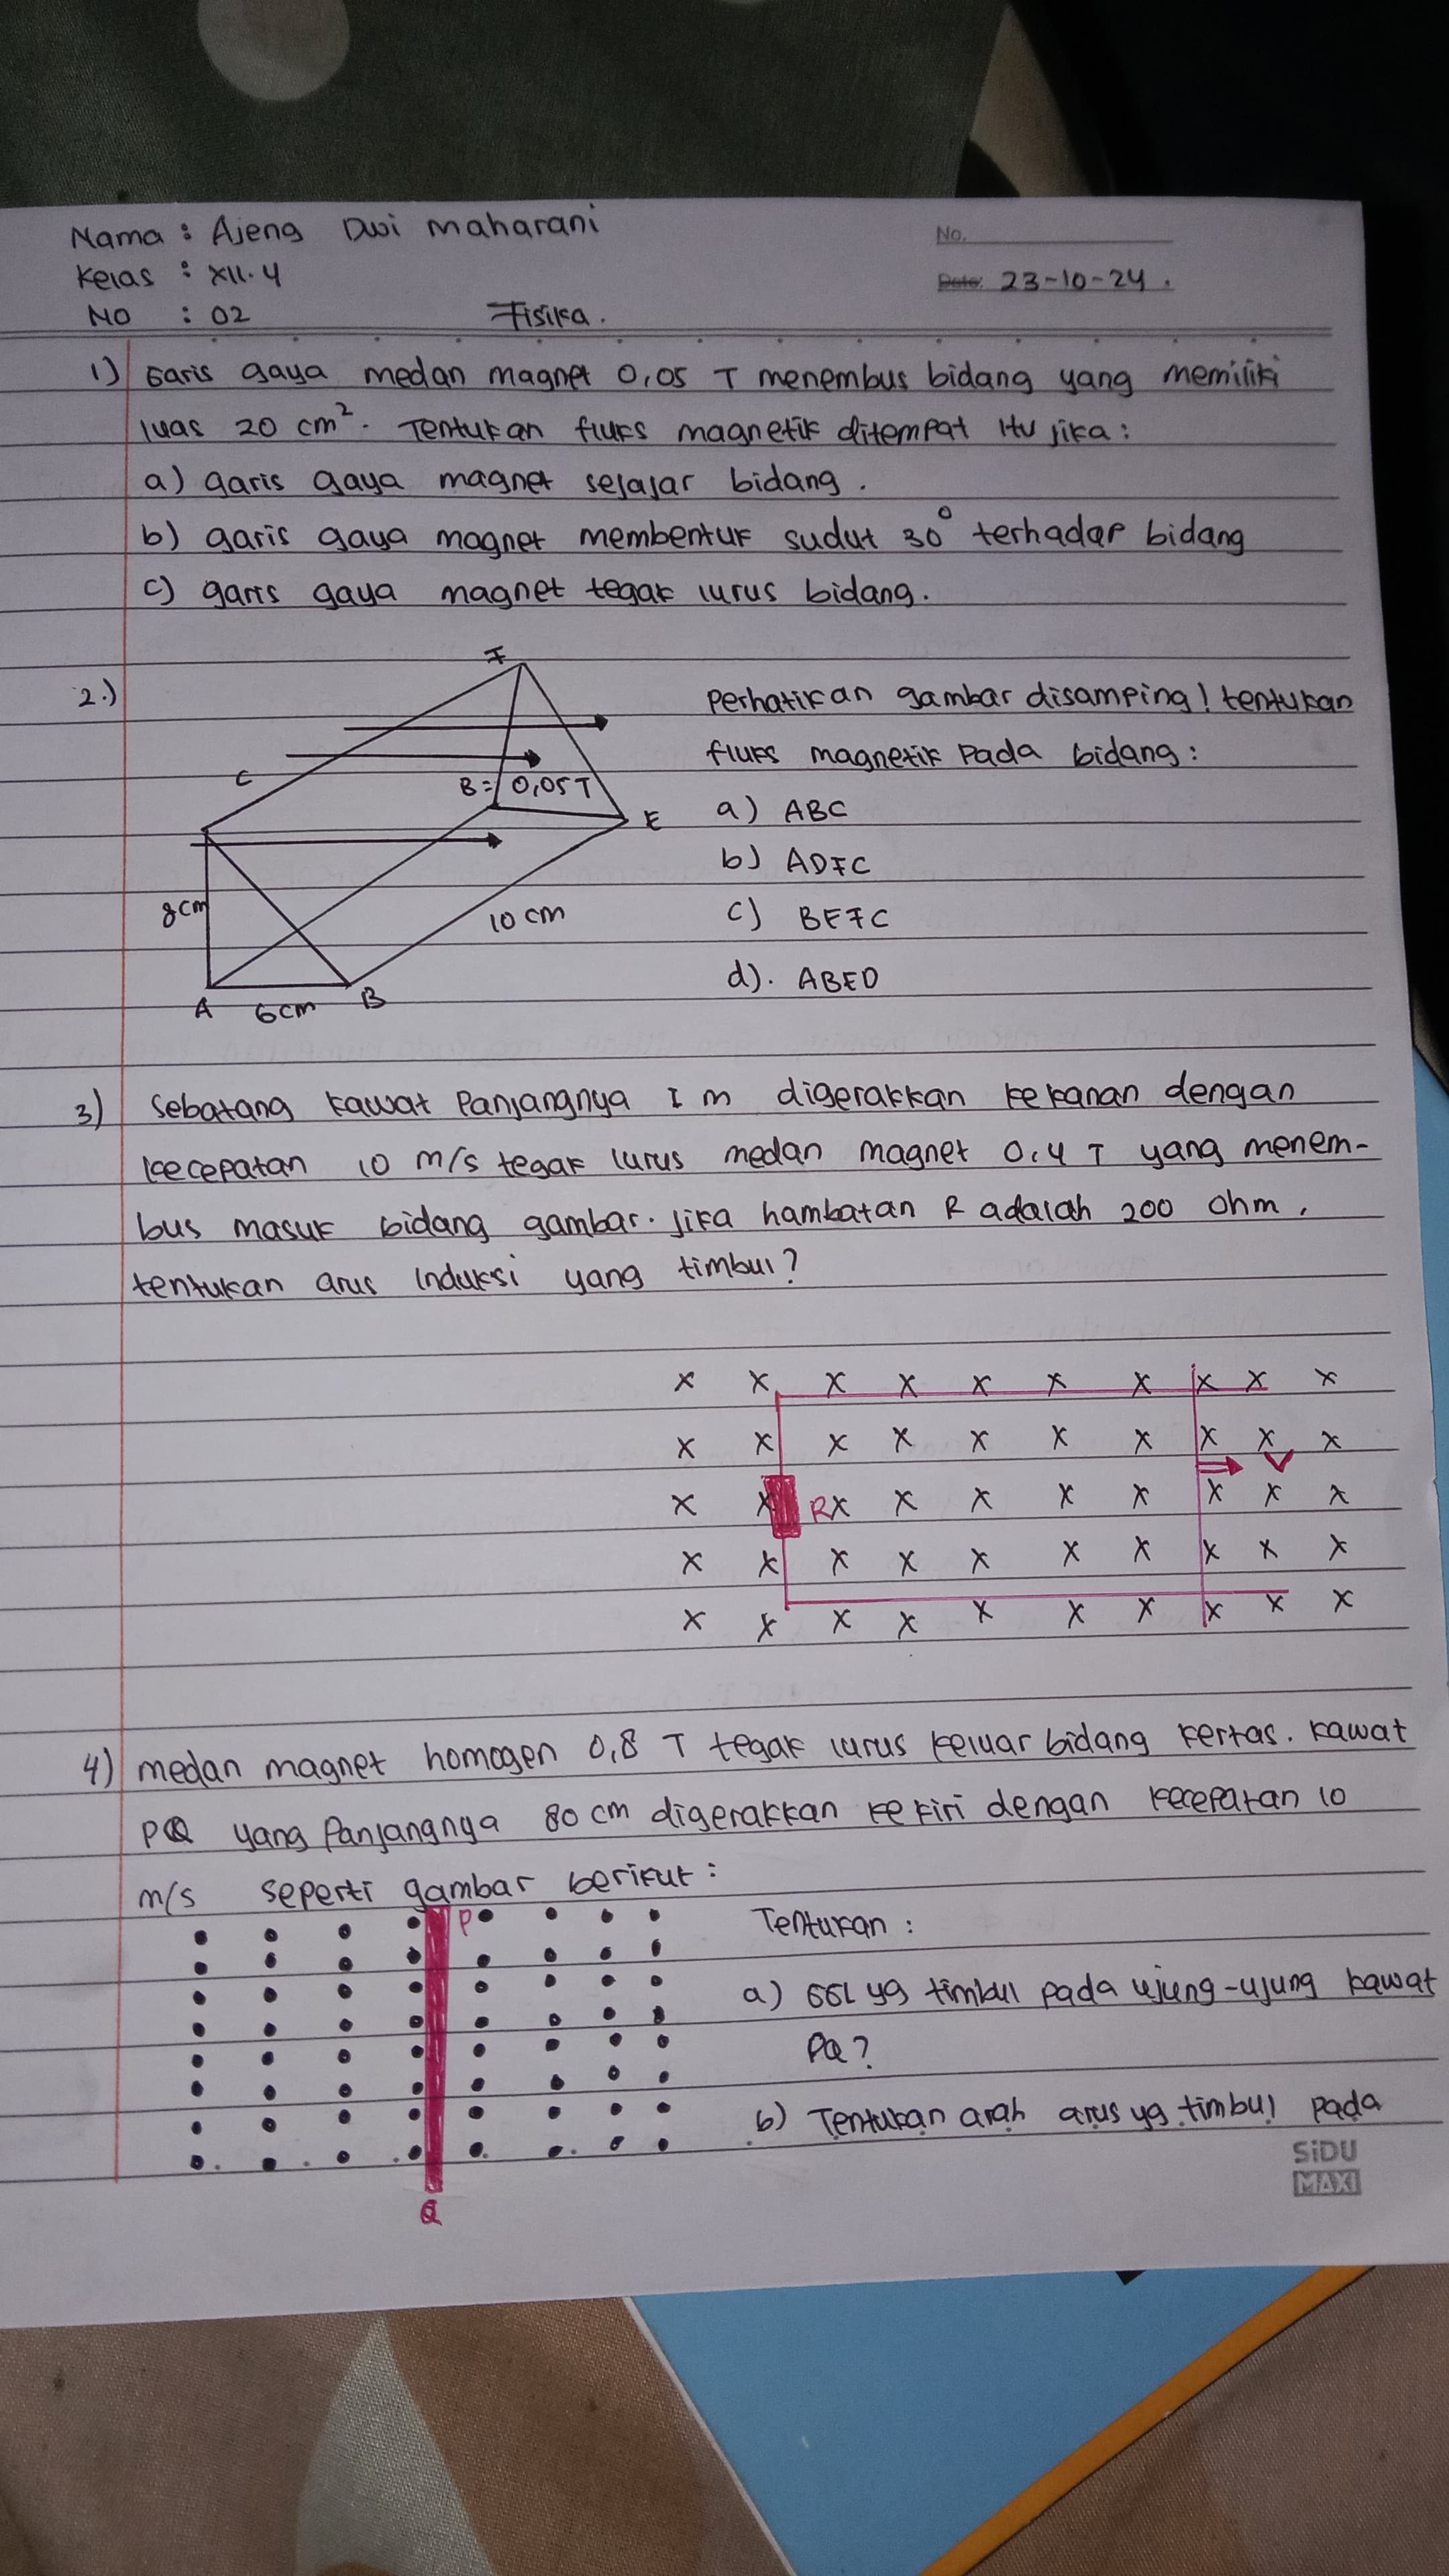 Nama : Ajeng Dwi Maharani
No.
Kelas : XII.4
Date. 23-10-24.
NO : 02
Fisika.
1) Garis gaya medan magnet 0,05 T menembus bidang yang memiliki
luas 20 cm². Tentukan fluks magnetik ditempat itu jika :
a) garis gaya magnet sejajar bidang.
b) garis gaya magnet membentuk sudut 30° terhadap bidang
c) garis gaya magnet tegak lurus bidang.
2.)
F
Perhatikan gambar disamping! tentukan
fluks magnetik pada bidang :
C
B = 0,05 T
E
a) ABC
b) ADFC
8cm
10 cm
c) BEFC
d). ABED
A 6cm B
3) Sebatang kawat panjangnya 1 m digerakkan kekanan dengan
kecepatan 10 m/s tegak lurus medan magnet 0,4 T yang menem-
bus masuk bidang gambar. Jika hambatan R adalah 200 ohm,
tentukan arus induksi yang timbul?
x x x x x x x x x x
x x x x x x x x x x
V
x x R x x x x x x x x
x x x x x x x x x x
x x x x x x x x x x
4) medan magnet homogen 0,8 T tegak lurus keluar bidang kertas. kawat
PQ yang panjangnya 80 cm digerakkan kekiri dengan kecepatan 10
m/s seperti gambar berikut :
P
Tentukan :
a) GGL yg timbul pada ujung-ujung kawat
PQ?
b) Tentukan arah arus yg timbul pada
SiDU
MAXI
Q